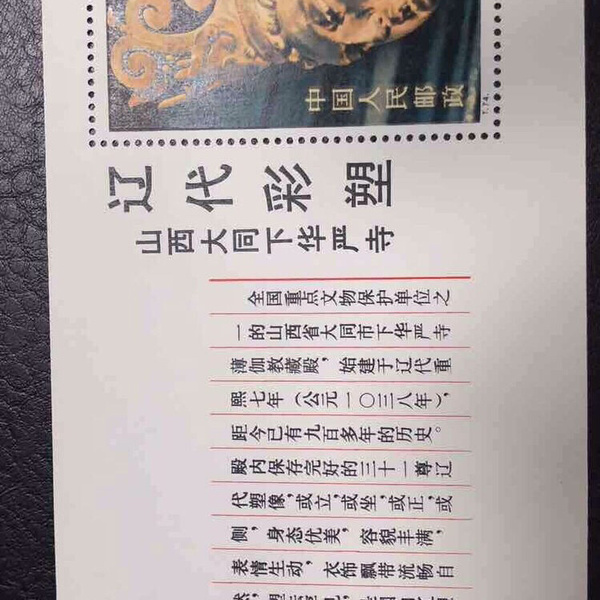 中国人民邮政
T.74.
辽代彩塑
山西大同下华严寺
全国重点文物保护单位之
一的山西省大同市下华严寺
薄伽教藏殿，始建于辽代重
熙七年（公元一〇三八年），
距今已有九百多年的历史。
殿内保存完好的三十一尊辽
代塑像，或立，或坐，或正，或
侧，身态优美，容貌丰满，
表情生动，衣饰飘带流畅自
然，